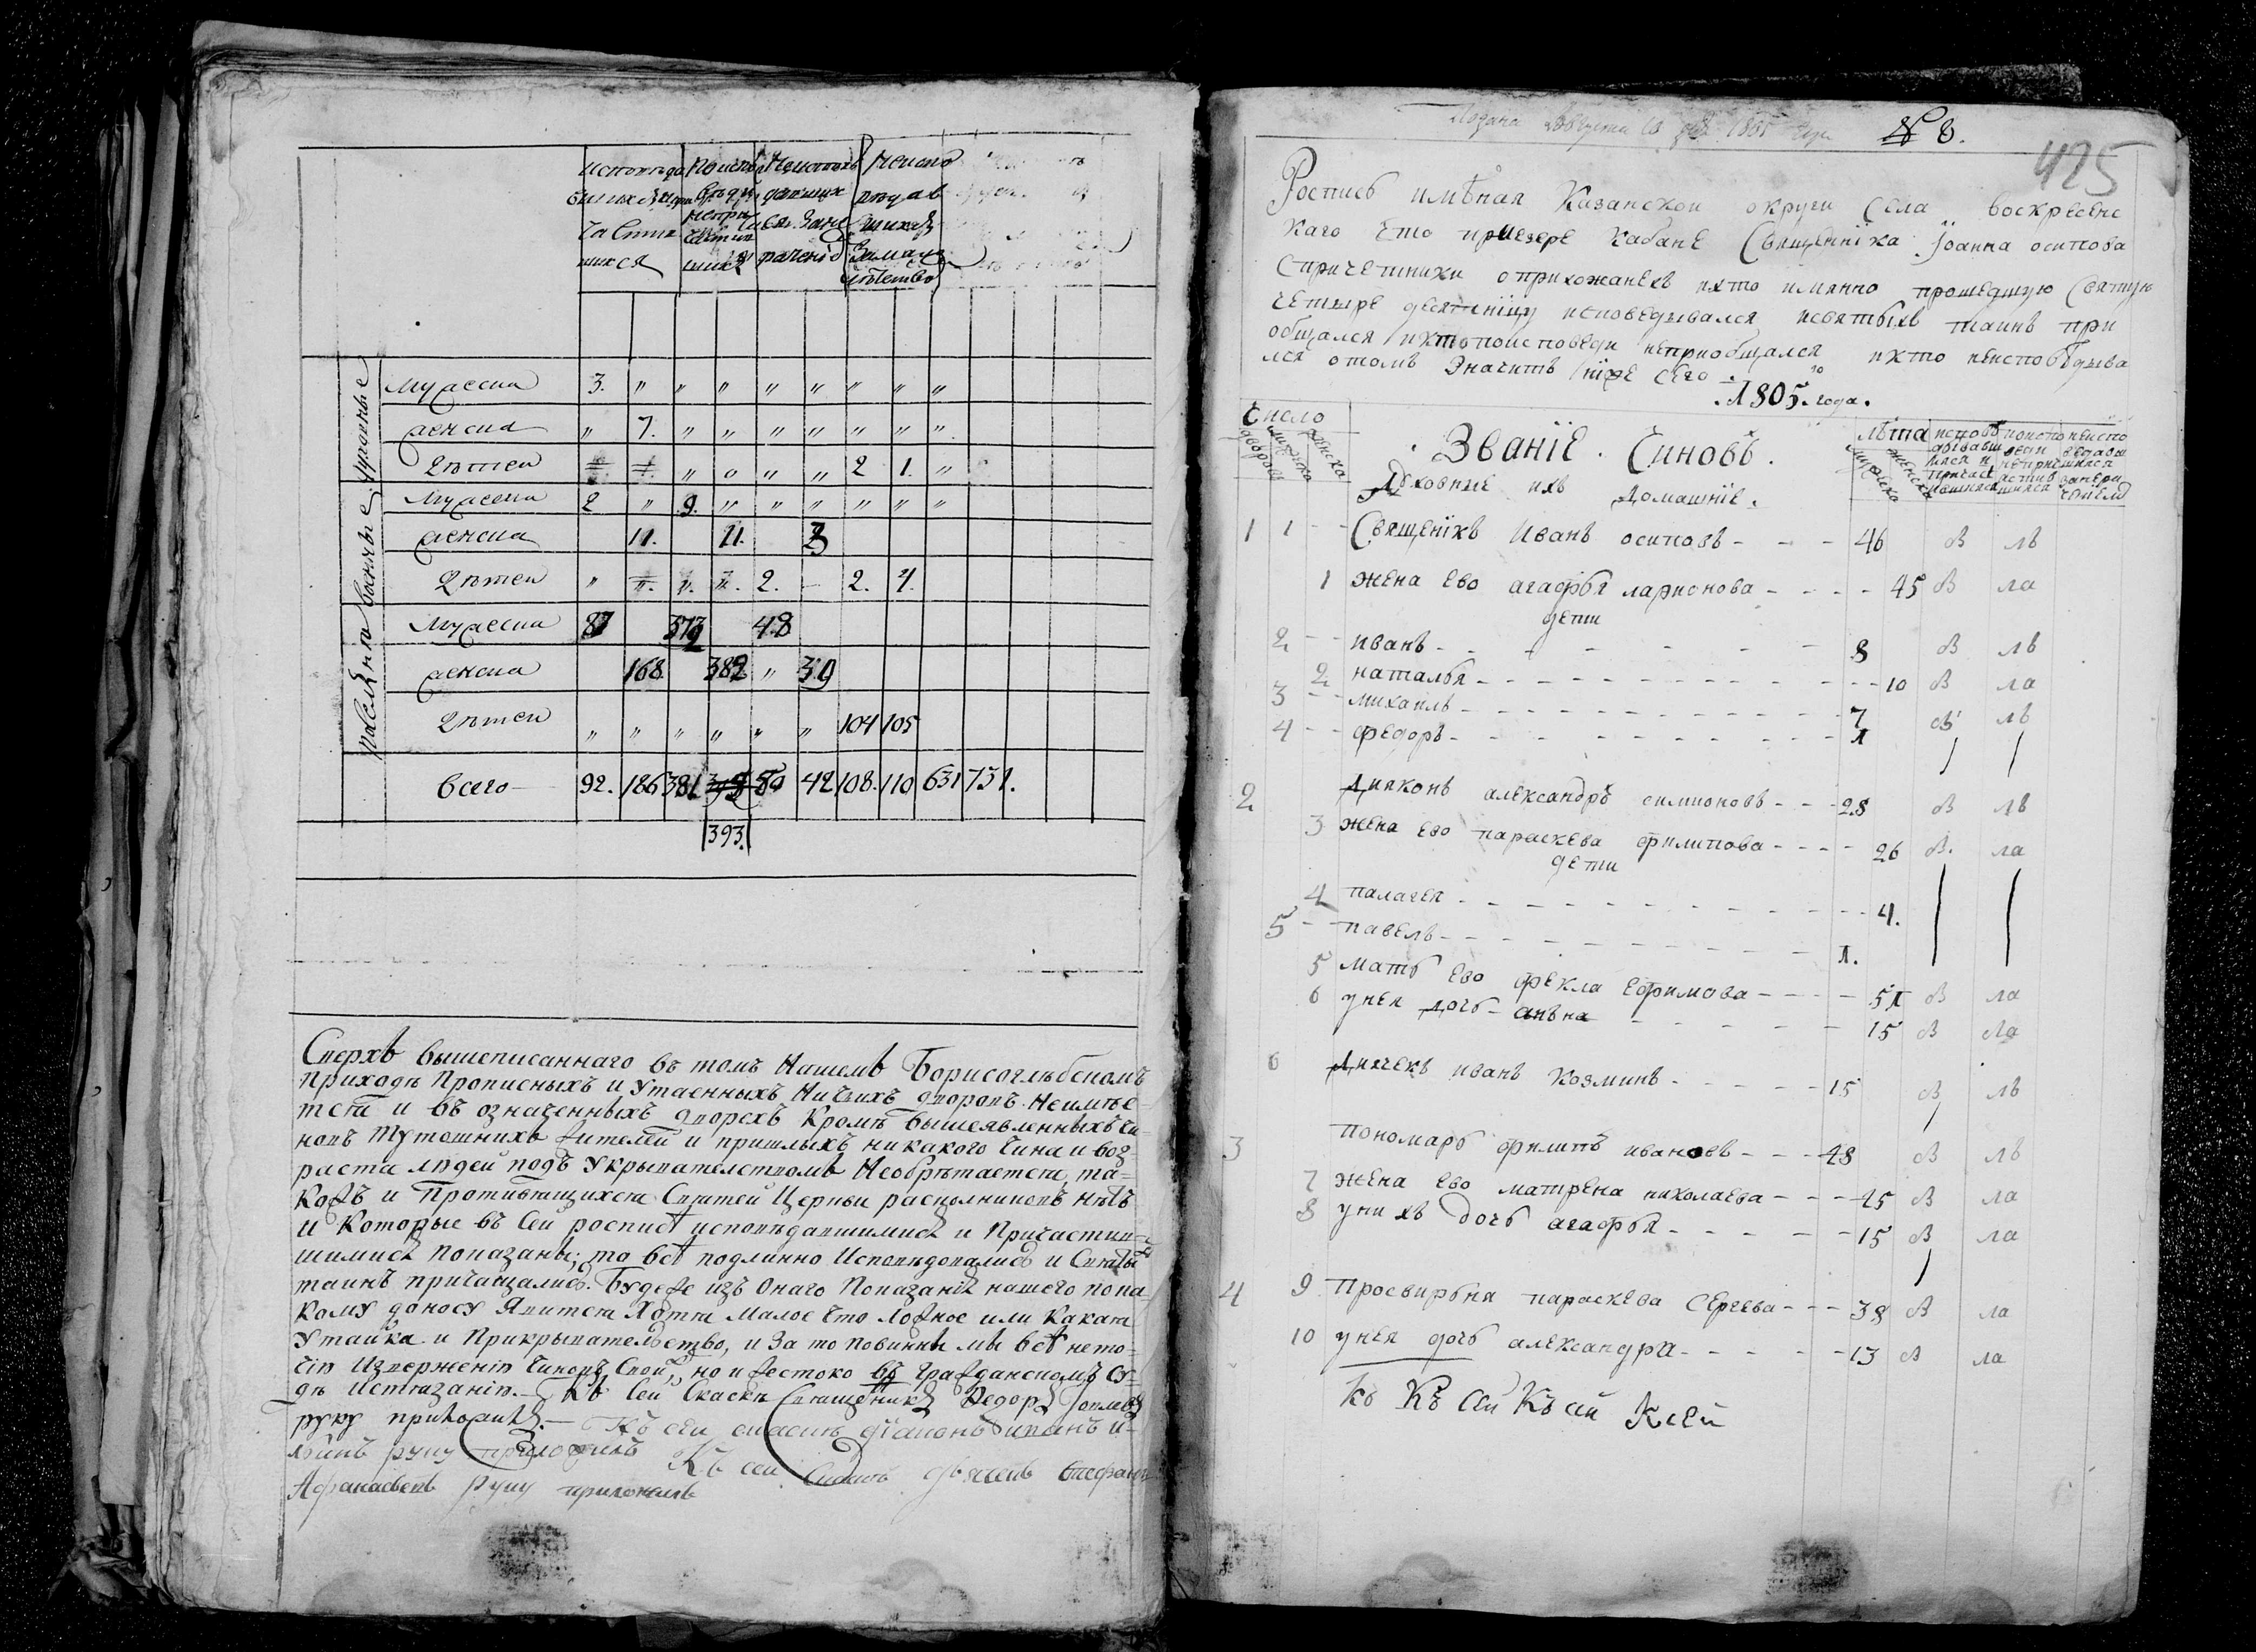 исповѣда поиспо Неисповѣ Неиспо
вшихся и при вѣди давших вѣдав
ча стив непри ся. Зане шихся
шихся частив рачені За мало
ших лѣтство
духовные
мужеска 3. " " " " " " " "
женска " 7. " " " " " " "
дѣтей " " 2 1. "
военные
мужеска 2 " 9. " " " " " "
женска 11. 11. 3
дѣтей " 2. 2. 4.
мужеска 87 48
женска 168 382 " 39
дѣтей " " " " " " 104 105
Всего 92. 186 381 50 42 108. 110 631 731.
393.
Сверхъ вышеписаннаго въ томъ Нашемъ Борисоглѣбскомъ
приходѣ Прописныхъ и утаенныхъ Ничьихъ дворовъ Неимѣе
тся и въ означенныхъ дворехъ Кромѣ вышеявленныхъ чи
новъ тутошнихъ жителей и пришлыхъ никакого чина и воз
раста людей подъ укрывателствомъ Необрѣтается, та=
кожъ и Противящихся Святей Церкви расколниковъ нѣтъ
и Которые въ Сей росписи исповѣдавшимися и Причастив=
шимися показаны; то всѣ подлинно Исповѣдовались и Святыхъ
таинъ причащались. Будеже изъ Онаго Показанія нашего по
кому доносу Явится Хотя малое что ложное или Какая
Утайка и Прикрывательство, и За то повинны мы всѣ нето=
чію Изверженію чиновъ Своихъ, но и жестоко въ гражданскомъ су=
дѣ Истязанію. Къ Сей Скаскѣ Священникъ Федоръ
руку приложилъ. Къ сей скаскѣ діаконъ иванъ и=
льинъ руку приложилъ Къ сей Скаскѣ дьячекъ Стефанъ
Афанасьевъ руку приложилъ
Подана Августа 1805 года № 8.
425
Роспись имѣная Казанской округи Села воскресенс
каго что приезере кабане Священика Іоанна осипова
спричетники оприхожанехъ икто имянно прошедшую святую
четыре десятницу исповедывался исвятыхъ таинъ при
общался иктопоисповеди неприобщался икто неисповѣдыва
лся отомъ Значитъ ниже сего
1805. года.
Число
дворовъ мужеска женска
Званіе. Чиновъ.
лѣта
мужеска женска
Духовные ихъ домашніе.
1 1 Священікъ Иванъ осиповъ 46 в лъ
1 жена ево агафья ларионова 45 в ла
дети
2 иванъ 8 в лъ
2 наталья 10 в ла
3 михаилъ 7 в лъ
4 федоръ 1
2 Диаконъ александръ симионовъ 28 в лъ
3 жена ево параскева филипова 26 в. ла
дети
4 палагея 4.
5 павелъ 1.
5 мать ево фекла ефимова 51 в ла
6 унея дочь анъна 15 в ла
6 Диячекъ иванъ козминъ 15 в лъ
3 пономарь филипъ ивановъ 48 в лъ
7 жена ево матрена николаева 45 в ла
8 уни хъ дочь агафья 15 в ла
4 9 Просвирьня параскева Сергева 38 в ла
10 унея дочь александра 13 в ла
Ко Къ Сей Къ сей Ксей